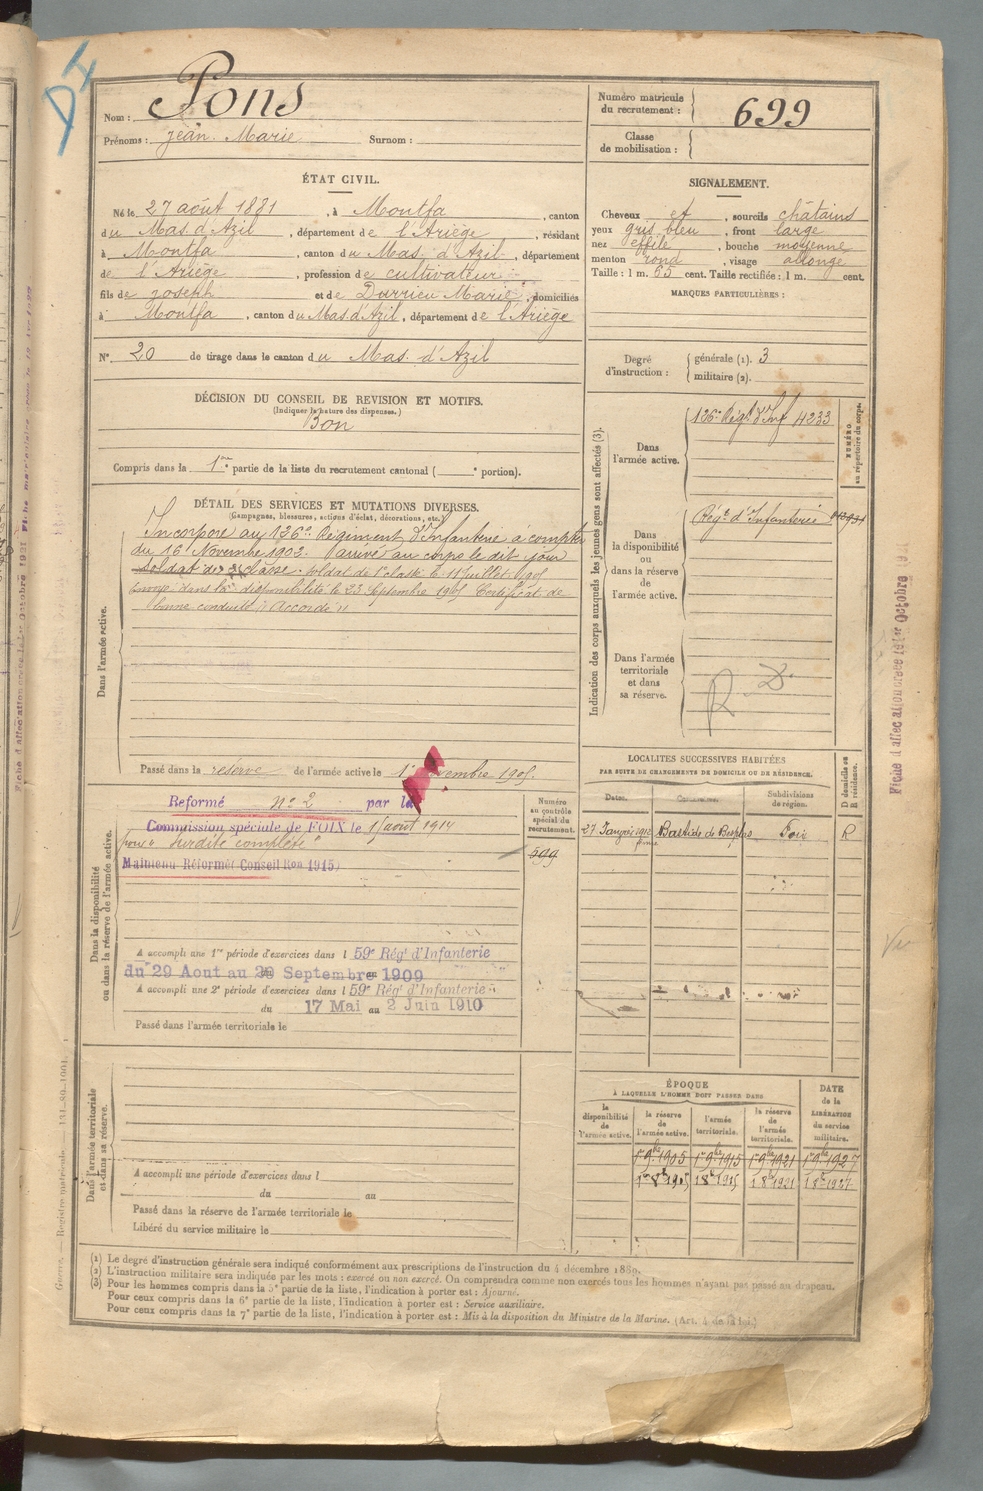 DI
Nom : Pons
Prénoms : Jean Marie Surnom :
Numéro matricule du recrutement : 699
Classe de mobilisation :
ÉTAT CIVIL.
Né le 27 août 1881, à Montfa, canton
du Mas d'Azil, département de l'Ariège, résidant
à Montfa, canton du Mas d'Azil, département
de l'Ariège, profession de cultivateur
fils de Joseph et de Durrieu Marie, domiciliés
à Montfa, canton du Mas d'Azil, département de l'Ariège
N° 20 de tirage dans le canton du Mas d'Azil
SIGNALEMENT.
Cheveux et, sourcils châtains
yeux gris bleu, front large
nez effilé, bouche moyenne
menton rond, visage allongé
Taille : 1 m. 65 cent. Taille rectifiée : 1 m. cent.
MARQUES PARTICULIÈRES :
Degré d'instruction : générale (1). 3
militaire (2).
DÉCISION DU CONSEIL DE REVISION ET MOTIFS.
(Indiquer la nature des dispenses.)
Bon
Compris dans la 1re partie de la liste du recrutement cantonal ( portion).
DÉTAIL DES SERVICES ET MUTATIONS DIVERSES.
(Campagnes, blessures, actions d'éclat, décorations, etc.)
Dans l'armée active.
Incorporé au 126e Régiment d'Infanterie à compter
du 16 Novembre 1902. Arrivé au corps le dit jour
soldat de 2e classe. Soldat de 1e classe le 11 juillet 1905
Envoyé dans la disponibilité le 23 Septembre 1905 Certificat de
bonne conduite "Accordé"
Passé dans la réserve de l'armée active le 1er Novembre 1905.
Indication des corps auxquels les jeunes gens sont affectés (3).
NUMÉRO au répertoire du corps.
Dans l'armée active.
126e Régt d'Inf 4233
Dans la disponibilité ou dans la réserve de l'armée active.
Régt d'Infanterie
Dans l'armée territoriale et dans sa réserve.
R D.
LOCALITÉS SUCCESSIVES HABITÉES
PAR SUITE DE CHANGEMENTS DE DOMICILE OU DE RÉSIDENCE.
Dates. Communes. Subdivisions de région. D domicile ou R résidence.
27 Janvier 1912 Bastide de Besplas Foix R
Dans la disponibilité ou dans la réserve de l'armée active.
Numéro au contrôle spécial du recrutement.
599
Reformé n° 2 par la
Commission spéciale de FOIX le 1 août 1914
pour "surdité complète"
Maintenu Réformé (Conseil Ron 1915)
A accompli une 1re période d'exercices dans l 59e Régt d'Infanterie
du 29 Aout au Septembre 1909
A accompli une 2e période d'exercices dans l 59e Régt d'Infanterie
du 17 Mai au 2 Juin 1910
Passé dans l'armée territoriale le
Dans l'armée territoriale et dans sa réserve.
A accompli une période d'exercices dans l
du au
Passé dans la réserve de l'armée territoriale le
Libéré du service militaire le
ÉPOQUE
À LAQUELLE L'HOMME DOIT PASSER DANS
la disponibilité de l'armée active. la réserve de l'armée active. l'armée territoriale. la réserve de l'armée territoriale. DATE de la LIBÉRATION du service militaire.
1er 9bre 1905 1er 9bre 1915 1er 9bre 1921 1er 9bre 1927
1er 8b 1905 1 8b 1915 1 8b 1921 1 8b 1927
(1) Le degré d'instruction générale sera indiqué conformément aux prescriptions de l'instruction du 4 décembre 1889.
(2) L'instruction militaire sera indiquée par les mots : exercé ou non exercé. On comprendra comme non exercés tous les hommes n'ayant pas passé au drapeau.
(3) Pour les hommes compris dans la 5e partie de la liste, l'indication à porter est : Ajourné.
Pour ceux compris dans la 6e partie de la liste, l'indication à porter est : Service auxiliaire.
Pour ceux compris dans la 7e partie de la liste, l'indication à porter est : Mis à la disposition du Ministre de la Marine. (Art. 4 de la loi.)
Guerre. — Registre matricule. —
Fiche d'affectation créée le 1er Octobre 1921
Vu